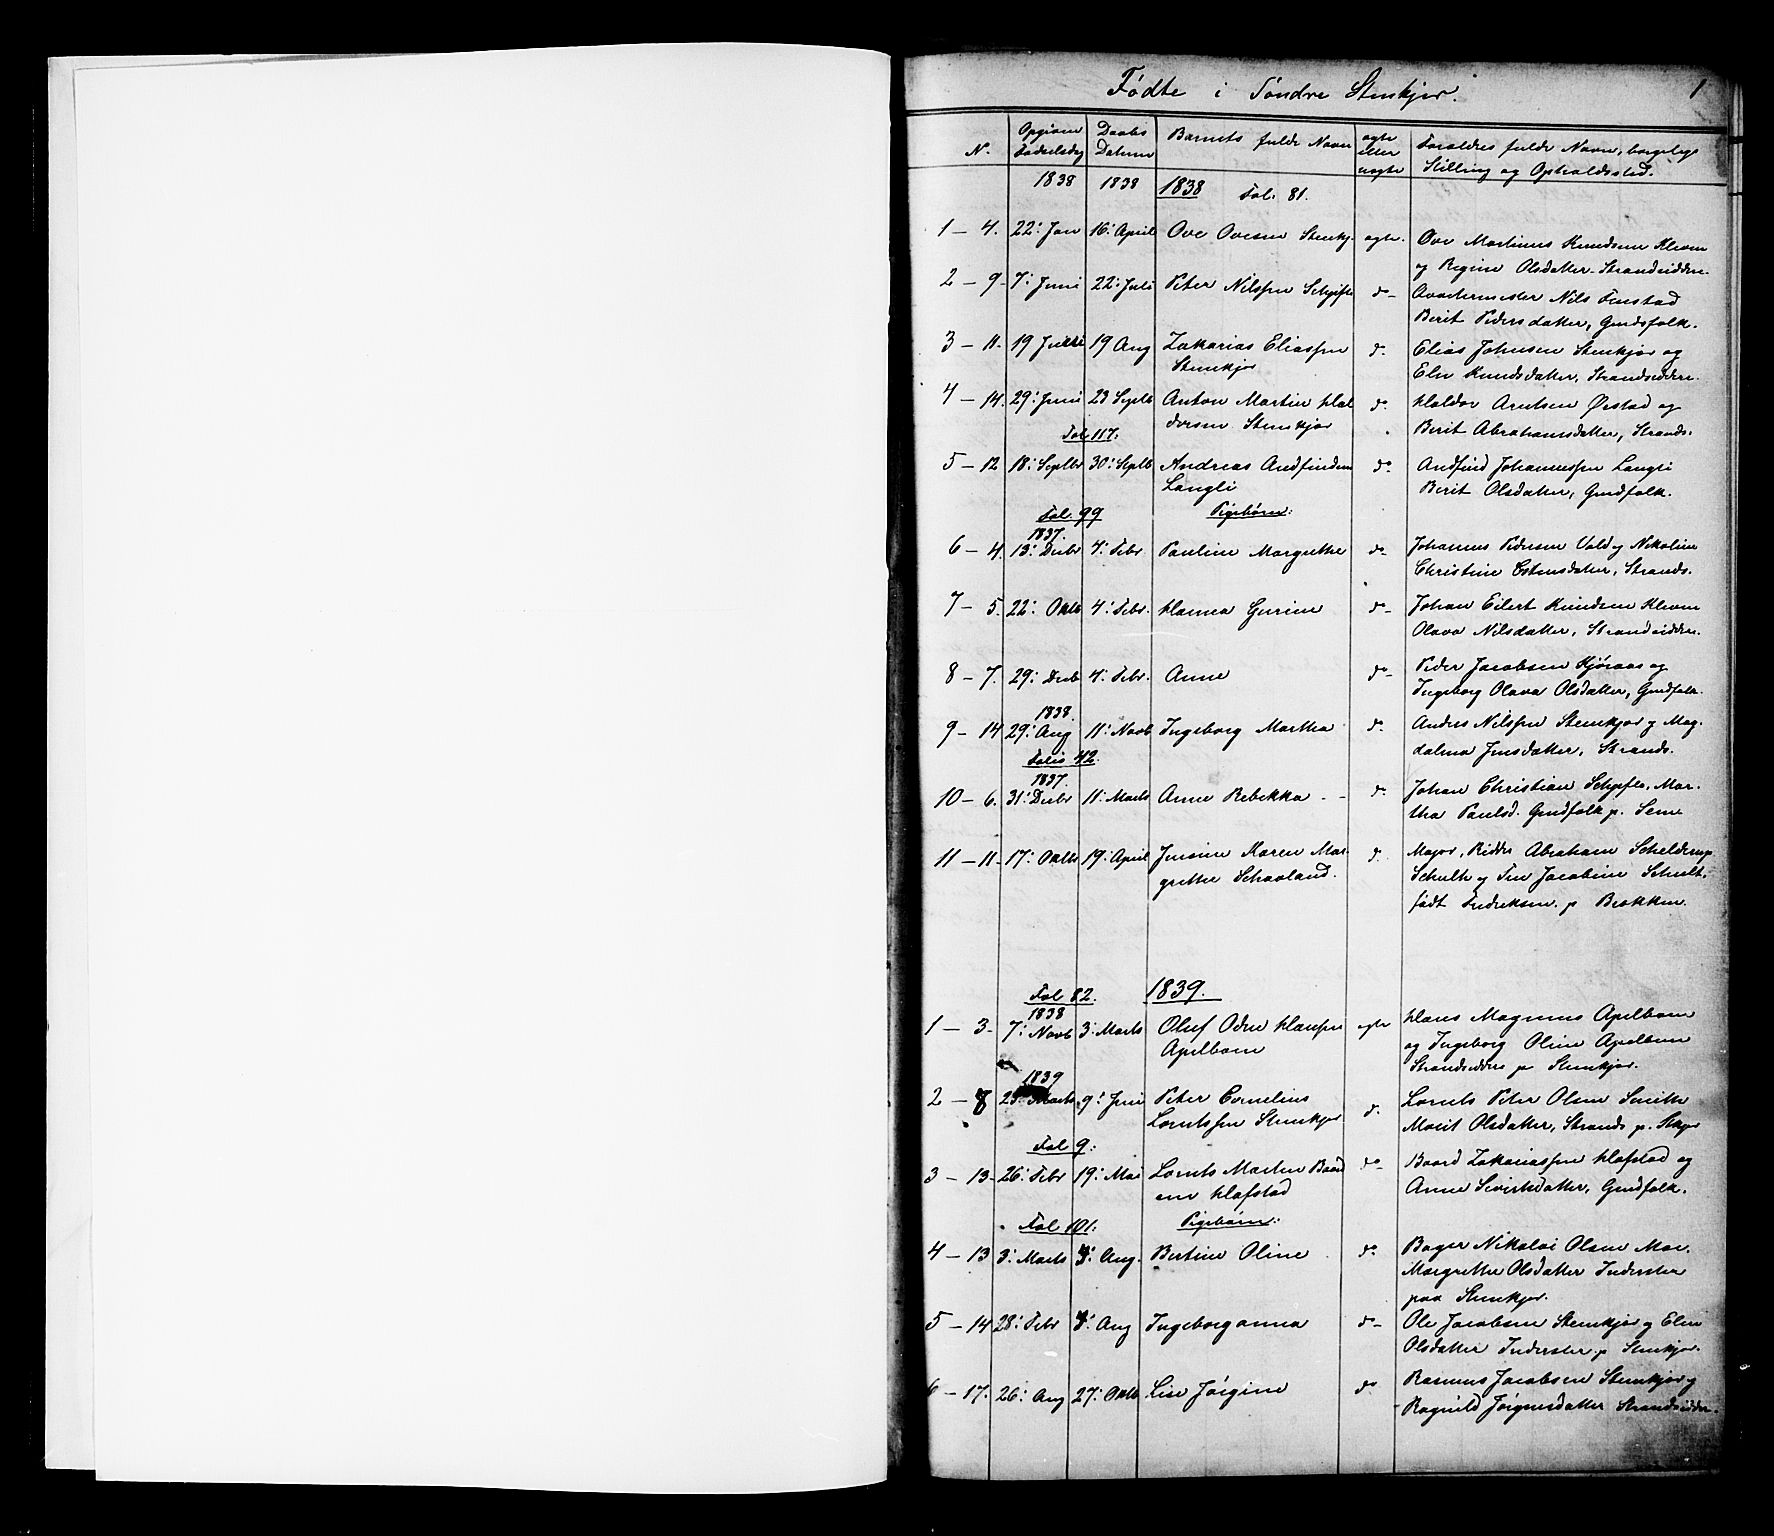 Fødte i Søndre Stenkjer. 1
N. Opgiven Daabs Barnets fulde Navn ægte Forældres fulde Navn, borgelige
Fødselsdag Datum eller Stilling og Opholdssted.
uægte
1838 1838 1838 Fol. 81.
1 – 4. 22: Jan 16: April Ove Ovesen Stenkj. ægte. Ove Martinus Knudsen Kleven
og Regine Olsdatter. Strandsiddere.
2 – 9. 7: Juni 22: Juli Peter Nilssen Schjefte do – Avaadermester Nils Finstad
Berit Pedersdatter, Gmdsfolk.
3 – 11. 19 Juli 19 Aug Zakarias Eliassen do. Elias Johnsen Stenkjær og
Stenkjær Elen Knudsdatter. Strandsiddere.
4 – 14. 29: Juni 23 Septb Anton Martin Hal do. Haldor Arntsen Østad og
Fol 117: dorsen Stenkjær Berit Abrahamsdatter, Strands.
5 – 12 18: Septbr 30: Septb Andreas Andfindsen do Andfind Johannessen Langli
Langli Berit Olsdatter, Gmdfolk.
Fol. 99 Pigebørn:
1837.
6 – 4. 13: Decbr 4: Febr Pauline Margrethe do Johannes Pedersen Vold og Nikoline
Christine Estensdatter, Strands.
7 – 5. 22: Oktb 4: Febr. Hanna Gurine do – Johan Eilert Knudsen Kleven
Olava Nilsdatter, Strandsiddere.
8 – 7. 29: Decb 4: Febr. Anne do – Peder Jacobsen Kjøraas og
Ingeborg Olava Olsdatter, Gmdfolk.
1838.
9 – 14 29: Aug 11: Novb Ingeborg Martha do. Anders Nilssen Stenkjær og Mag
Folio 42. dalena Jensdatter, Strands.
1837.
10 – 6. 31: Decbr 11: Marts Anne Rebekka – – do. Johan Christian Schjefte, Mar-
tha Paulsd. Gmdfolk p. Sem
11 – 11. 17: Oktb 19: April Jensine Karen Mar- do. Major, Ridder Abraham Schelderup
grethe Schaaland. Schulth og Fru Jacobine Schult,
født Fredriksen. p Brækken.
Fol 82. 1839.
1838
1 – 3. 7: Novb 3: Marts Oluf Odin Hansen ægte Hans Magnus Apelbom
Apelbom og Ingeborg Oline Apelbom
Strandsiddere p Stenkjær.
1839
2 – 8 25 Marts 9: Juni Peter Cornelius do. Lorents Peter Olsen Smith
Lorntssen Stenkjær Marit Olsdatter, Strands p. Stkjær
Fol 9:
3 – 13. 26: Febr 19: Mai Lornts Martin Baard do – Baard Zakariassen Hafstad og
sen Hafstad Anne Sivertsdatter, Gmdfolk.
Fol 101: Pigebørn:
4 – 13 3: Marts 4: Aug. Bertine Oline do Bager Nikolai Olsen Mar.
Margrethe Olsdatter Inderster
paa Stenkjær.
5 – 14 28: Febr 4: Aug Ingeborganna do – Ole Jacobsen Stenkjær og Elen
Olsdatter Inderster, p Stenkjær.
6 – 17. 26: Aug 27: Oktb Lise Jørgine do Rasmus Jacobsen Stenkjær og
Ragnild Jørgensdatter Strandsidder.